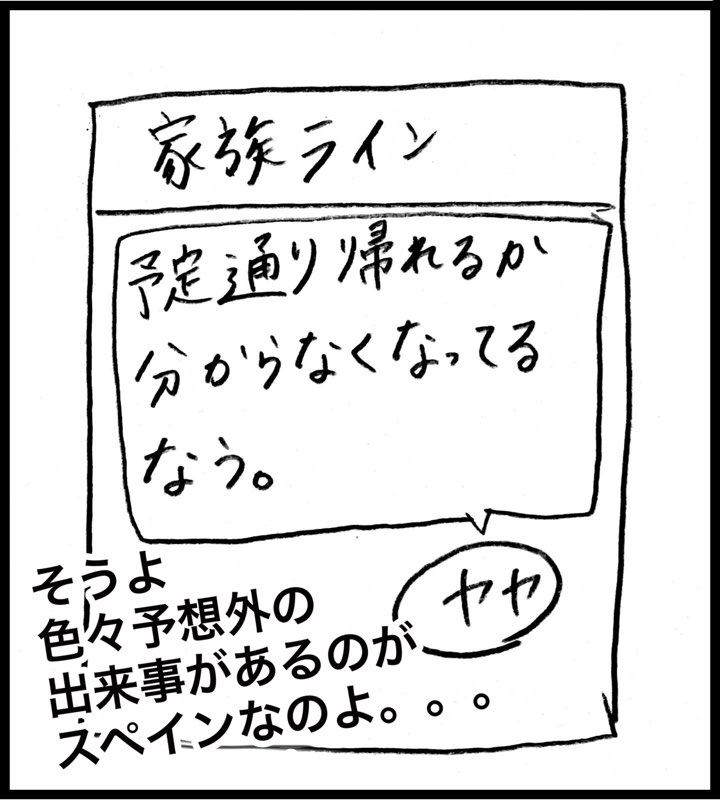 家族ライン
予定通り帰れるか
分からなくなってる
なう。
ヤヤ
そうよ
色々予想外の
出来事があるのが
スペインなのよ。。。